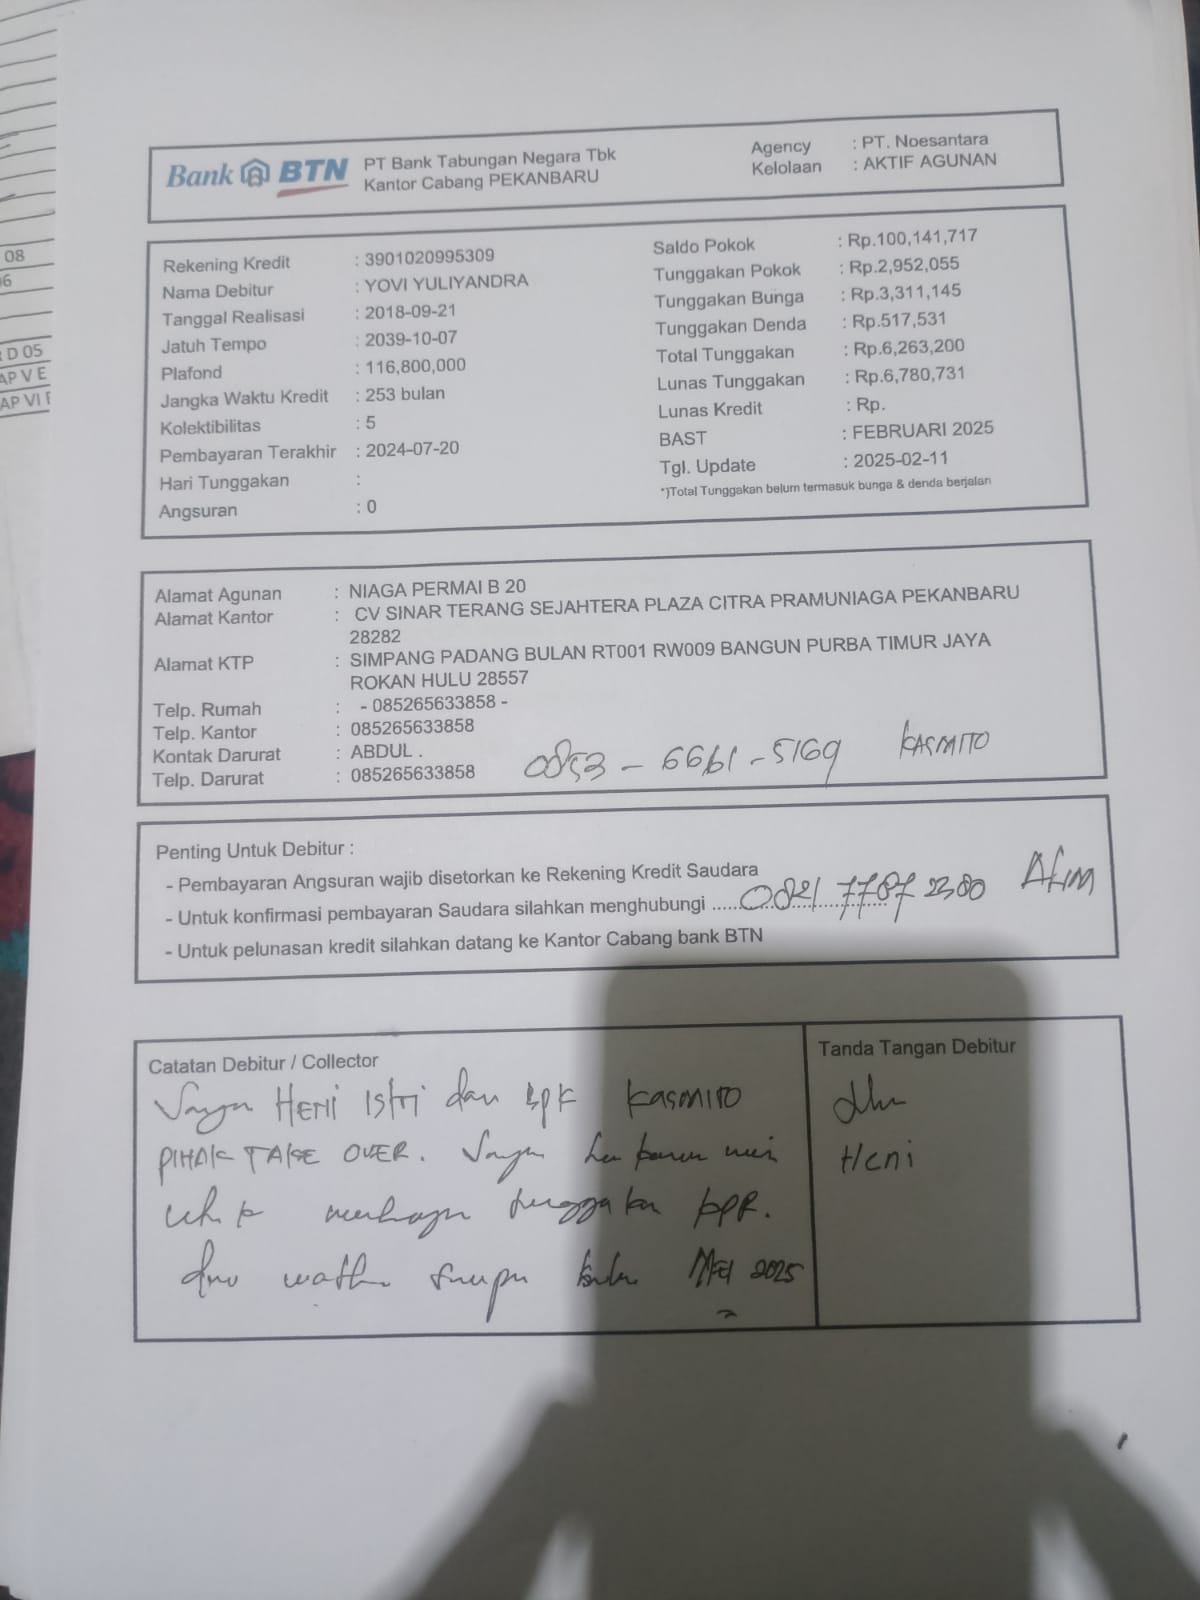 08
06
D 05
AP V E
AP VI F
Bank BTN
PT Bank Tabungan Negara Tbk
Kantor Cabang PEKANBARU
Agency : PT. Noesantara
Kelolaan : AKTIF AGUNAN
Rekening Kredit : 3901020995309
Nama Debitur : YOVI YULIYANDRA
Tanggal Realisasi : 2018-09-21
Jatuh Tempo : 2039-10-07
Plafond : 116,800,000
Jangka Waktu Kredit : 253 bulan
Kolektibilitas : 5
Pembayaran Terakhir : 2024-07-20
Hari Tunggakan :
Angsuran : 0
Saldo Pokok : Rp.100,141,717
Tunggakan Pokok : Rp.2,952,055
Tunggakan Bunga : Rp.3,311,145
Tunggakan Denda : Rp.517,531
Total Tunggakan : Rp.6,263,200
Lunas Tunggakan : Rp.6,780,731
Lunas Kredit : Rp.
BAST : FEBRUARI 2025
Tgl. Update : 2025-02-11
*)Total Tunggakan belum termasuk bunga & denda berjalan
Alamat Agunan : NIAGA PERMAI B 20
Alamat Kantor : CV SINAR TERANG SEJAHTERA PLAZA CITRA PRAMUNIAGA PEKANBARU
28282
Alamat KTP : SIMPANG PADANG BULAN RT001 RW009 BANGUN PURBA TIMUR JAYA
ROKAN HULU 28557
Telp. Rumah : - 085265633858 -
Telp. Kantor : 085265633858
Kontak Darurat : ABDUL .
Telp. Darurat : 085265633858
0853 - 6661 - 5169 KASMITO
Penting Untuk Debitur :
- Pembayaran Angsuran wajib disetorkan ke Rekening Kredit Saudara
- Untuk konfirmasi pembayaran Saudara silahkan menghubungi ..... 0821 7787 2380
- Untuk pelunasan kredit silahkan datang ke Kantor Cabang bank BTN
Catatan Debitur / Collector
Saya HENI istri dari BPK KASMITO
PIHAK TAKE OVER. Saya
untuk tunggakan KPR.
waktu sampai bulan MEI 2025
Tanda Tangan Debitur
Heni